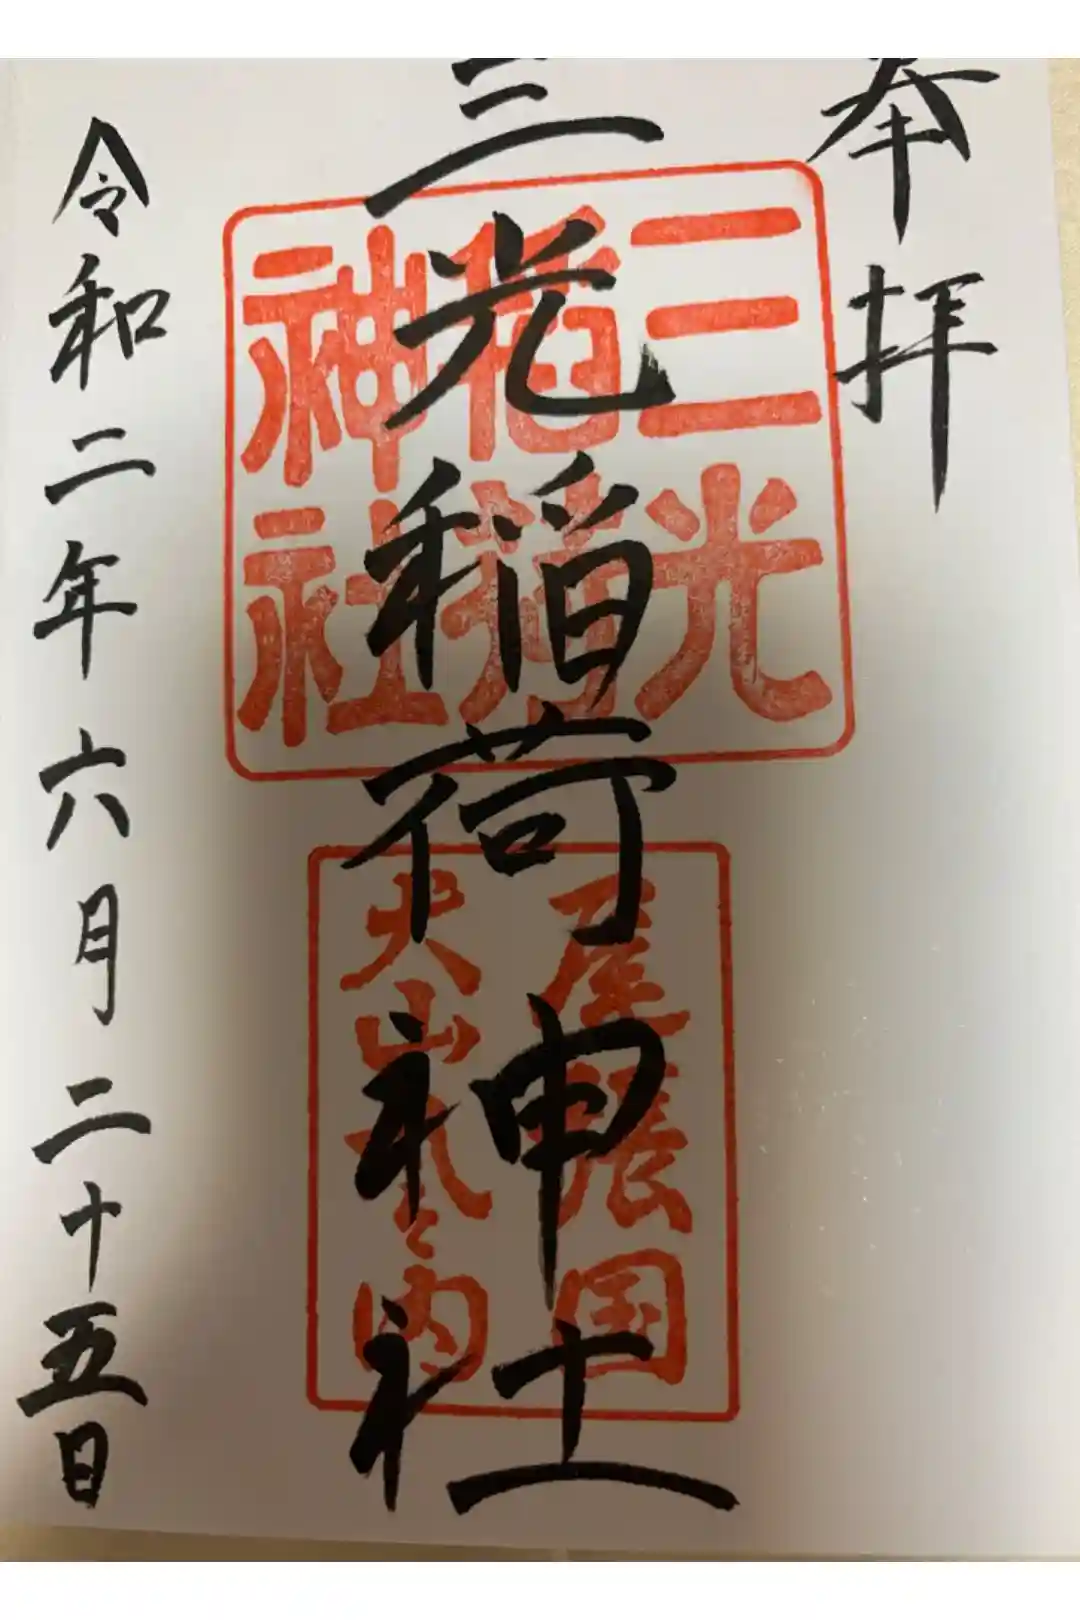 奉拝
三光稲荷神社
令和二年六月二十五日
三光
稲荷
神社
尾張国
犬山丸之内